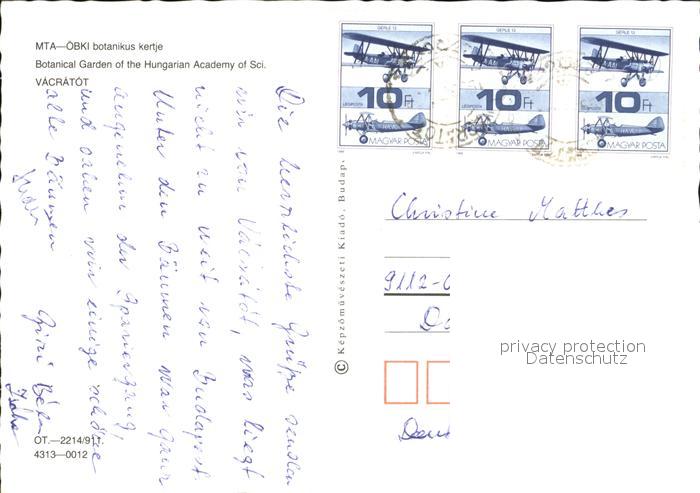 MTA—ÖBKI botanikus kertje
Botanical Garden of the Hungarian Academy of Sci.
VÁCRÁTÓT
Die herzlichste Grüße senden
wir von Vácrátót, was liegt
nicht zu weit von Budapest.
Unter den Bäumen war ganz
angenehm der Spaziergang,
und sehen wir einige schöne
alte Bäumen
Gizi Béla
OT.—2214/911.
4313—0012
© Képzőművészeti Kiadó, Budap.
GERLE 13 GERLE 13 GERLE 13
10 Ft 10 Ft 10 Ft
LÉGIPOSTA LÉGIPOSTA LÉGIPOSTA
MAGYAR POSTA MAGYAR POSTA MAGYAR POSTA
Christine Matthes
9112-
privacy protection
Datenschutz